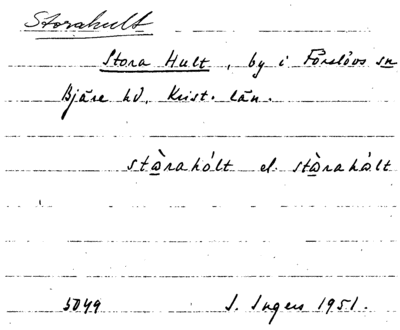 Storahult
Stora Hult, by i Förslövs sn
Bjäre hd, Krist. län.
stàrahólt el. stàrahòlt
5049 I. Ingers 1951.